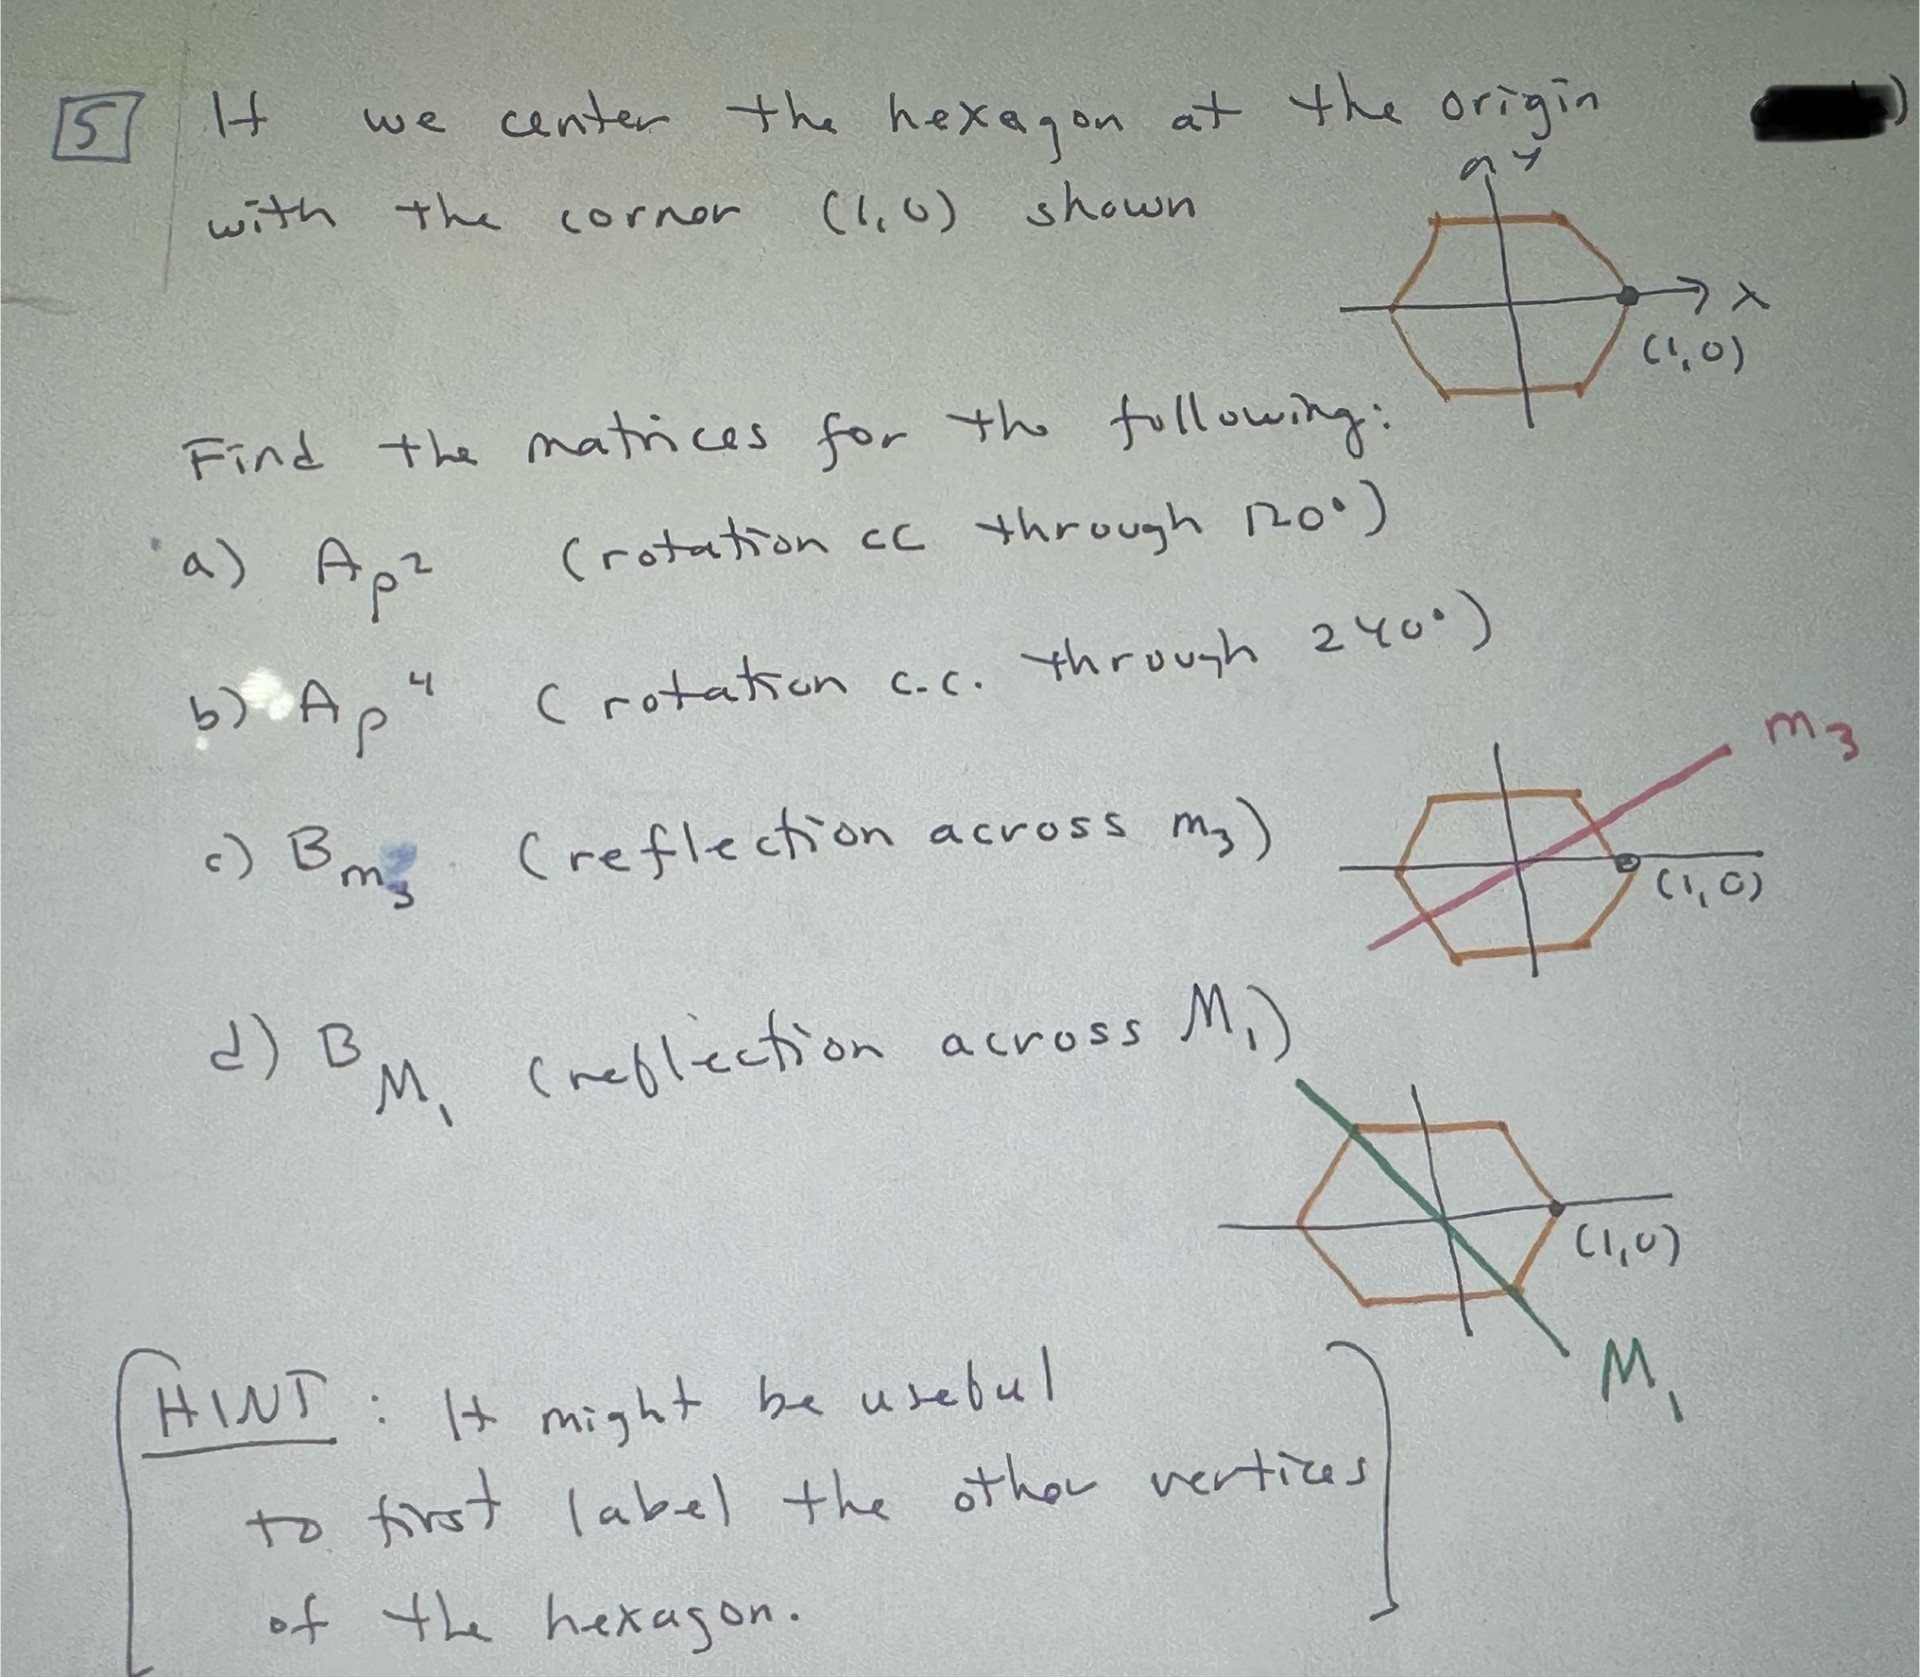 5 If we center the hexagon at the origin )
with the corner (1,0) shown
y
x
(1,0)
Find the matrices for the following:
a) Aρ² (rotation cc through 120°)
b) Aρ⁴ (rotation c.c. through 240°)
m₃
c) Bm₃ (reflection across m₃)
(1,0)
d) BM₁ (reflection across M₁)
(1,0)
M₁
HINT: It might be useful
to first label the other vertices
of the hexagon.